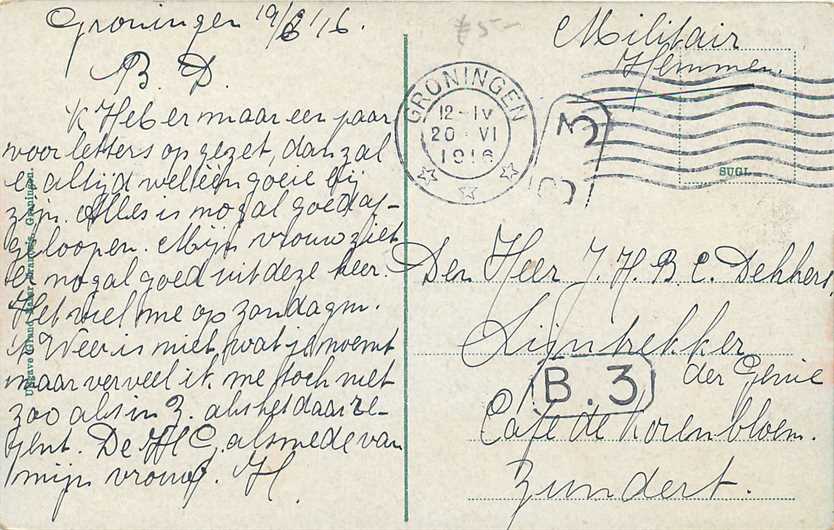 Groningen 19/6 '16.
B. D.
'k Heb er maar een paar
voorletters op gezet, dan zal
er altijd wel een goeie bij
zijn. Alles is nogal goed af-
geloopen. Mijn vrouw ziet
er nogal goed uit deze keer.
Het viel me op zondag m.
't Weer is niet wat je noemt
maar verveel ik me toch niet
zoo als in Z. als het daar re-
gent. De H G. alsmede van
mijn vrouw. H.
Uitgave Grand Bazar Français, Groningen.
£5-
Militair
Hemmen
GRONINGEN
12-IV
20 VI
1916
SUGL
Den Heer J. H. B. C. Dekkers,
Lijntrekker
der Genie
B.3
Café de Korenbloem.
Zundert.